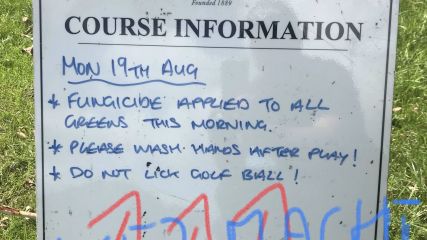 Founded 1889
COURSE INFORMATION
MON 19TH AUG
* FUNGICIDE APPLIED TO ALL
GREENS THIS MORNING.
* PLEASE WASH HANDS AFTER PLAY!
* DO NOT LICK GOLF BALL!